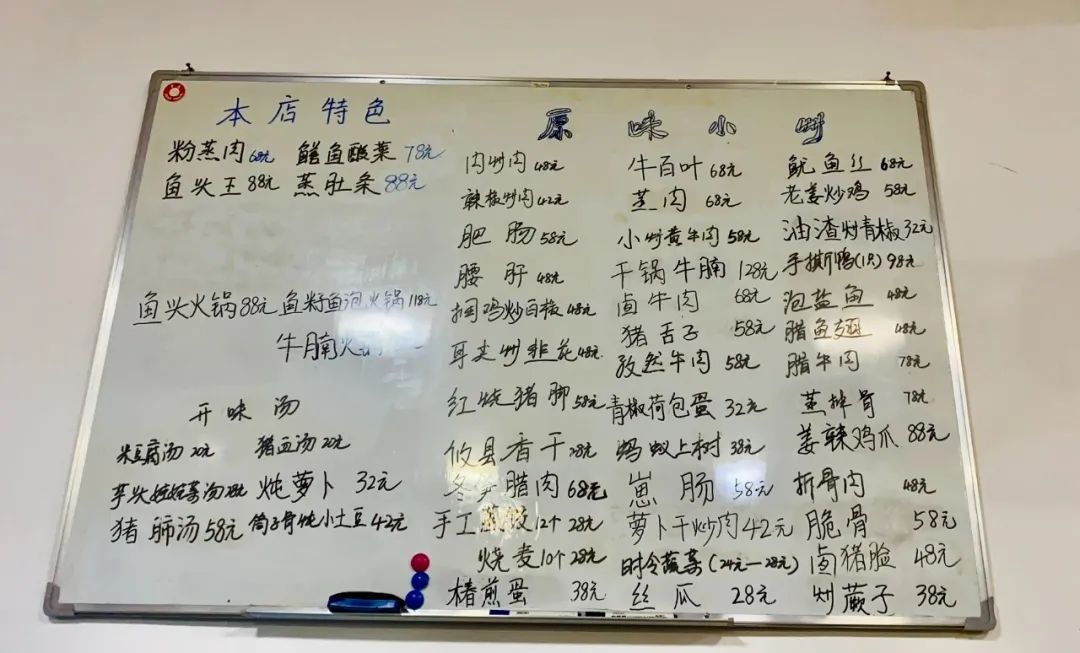 本店特色
粉蒸肉68元 鳝鱼酸菜78元
鱼头王88元 蒸肚条88元
鱼头火锅88元 鱼籽鱼泡火锅118元
牛腩火
开味汤
米豆腐汤20元 猪血汤20元
芋头娃娃菜汤28元 炖萝卜32元
猪肺汤58元 筒子骨炖小土豆42元
原味小炒
肉炒肉48元 牛百叶68元 鱿鱼丝68元
辣椒炒肉42元 蒸肉68元 老姜炒鸡58元
肥肠58元 小炒黄牛肉58元 油渣炒青椒32元
腰肝48元 干锅牛腩128元 手撕鸭(1只)98元
鸡炒白椒48元 卤牛肉68元 泡盐鱼48元
耳尖炒韭花48元 猪舌子58元 腊鱼翅48元
红烧猪脚58元 孜然牛肉58元 腊牛肉78元
攸县香干28元 青椒荷包蛋32元 蒸排骨78元
冬笋腊肉68元 蚂蚁上树38元 姜辣鸡爪88元
手工蒸饺12个28元 崽肠58元 折骨肉48元
烧麦10个28元 萝卜干炒肉42元 脆骨58元
椿煎蛋38元 时令蔬菜(24元—28元) 卤猪脸48元
丝瓜28元 炒蕨子38元